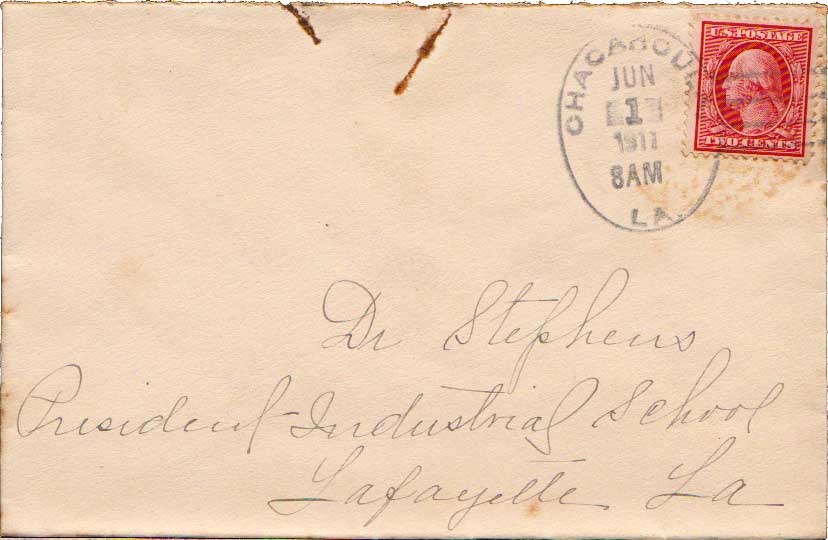 CHACAHOU
JUN
1
1911
8AM
LA.
U.S. POSTAGE
TWO CENTS
Dr Stephens
President Industrial School
Lafayette La